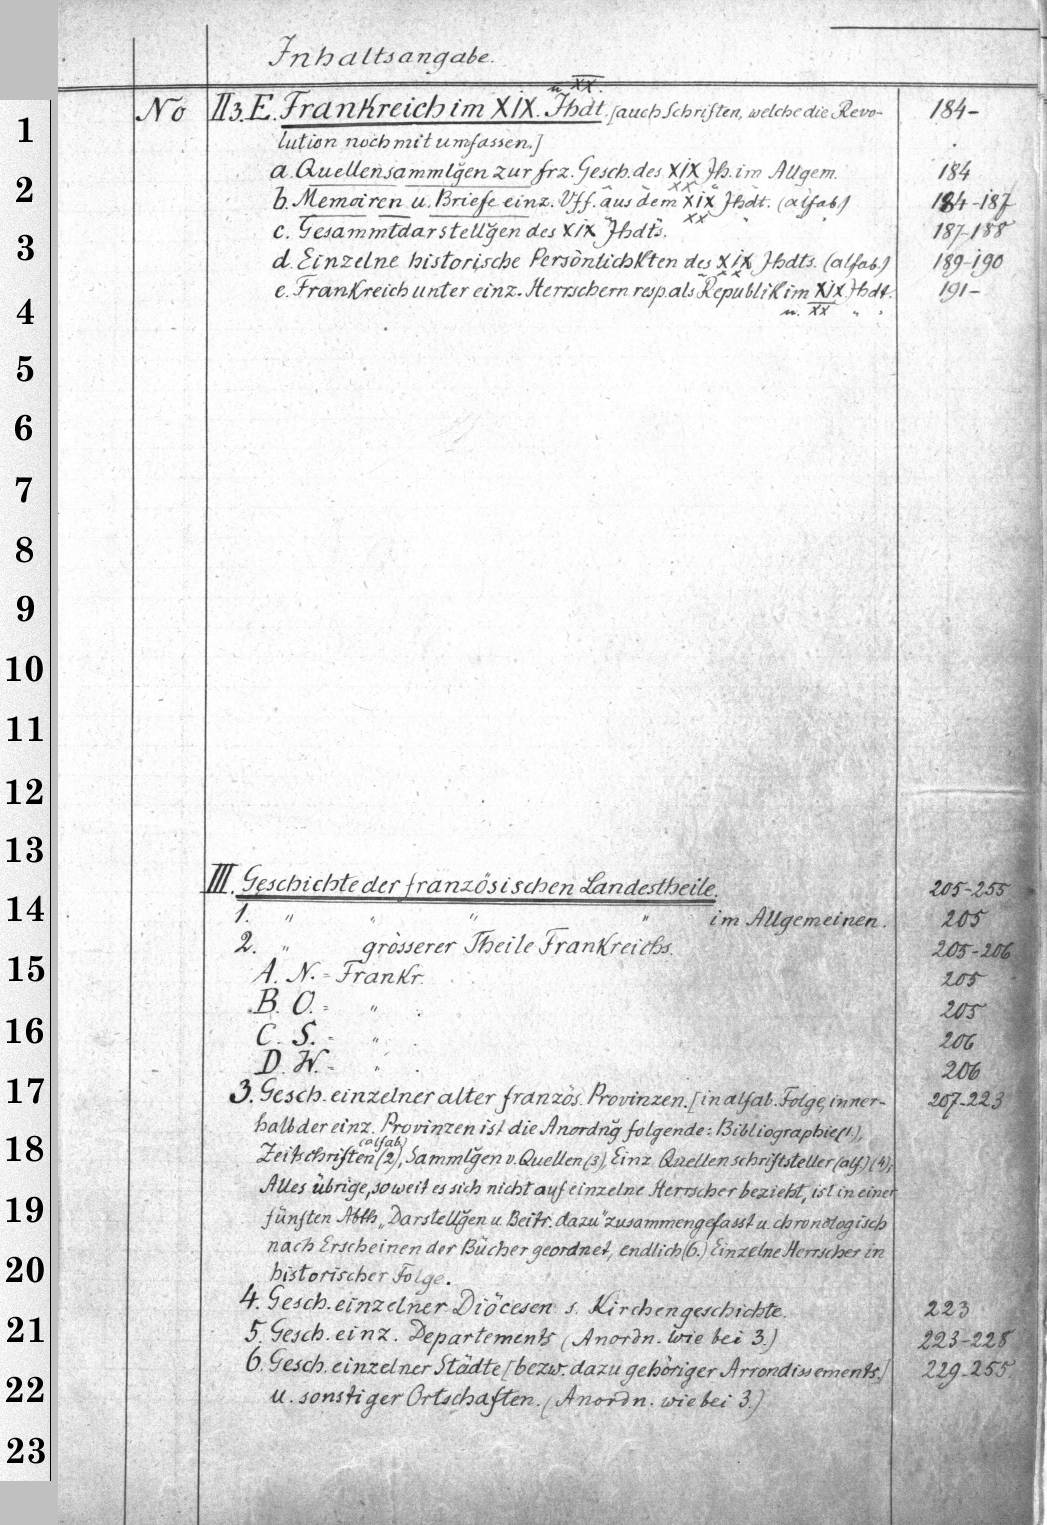 Inhaltsangabe.
u. XX.
No II3.E. Frankreich im XIX. Jhdt. [auch Schriften, welche die Revo- 184-
lution noch mit umfassen.]
a. Quellensammlg̃en zur frz. Gesch. des XIX Jh. im Allgem. 184
XX "
b. Memoiren u. Briefe einz. Vff. aus dem XIX Jhdt. (alfab.) 184-187
XX "
c. Gesammtdarstellg̃en des XIX Jhdts. 187-188
d. Einzelne historische Persönlichkten des XIX Jhdts. (alfab.) 189-190
XX
e. Frankreich unter einz. Herrschern resp. als Republik im XIX Jhdt. 191-
u. XX " "
III. Geschichte der französischen Landestheile. 205-255
1. " " " " im Allgemeinen. 205
2. " grösserer Theile Frankreichs. 205-206
A. N.= Frankr. 205
B. O.= " . 205
C. S.= " . 206
D. W.= " . 206
3. Gesch. einzelner alter französ. Provinzen. [in alfab. Folge, inner- 207-223
halb der einz. Provinzen ist die Anordng̃ folgende: Bibliographie (1.),
(alfab)
Zeitschriften (2), Sammlg̃en v. Quellen (3), Einz. Quellenschriftsteller (alf.) (4),
Alles übrige, soweit es sich nicht auf einzelne Herrscher bezieht, ist in einer
fünften Abth. „Darstellg̃en u. Beitr. dazu" zusammengefasst u. chronologisch
nach Erscheinen der Bücher geordnet, endlich (6.) Einzelne Herrscher in
historischer Folge.
4. Gesch. einzelner Diöcesen s. Kirchengeschichte. 223
5. Gesch. einz. Departements (Anordn. wie bei 3.) 223-228
6. Gesch. einzelner Städte [bezw. dazu gehöriger Arrondissements.] 229-255
u. sonstiger Ortschaften. (Anordn. wie bei 3.)
1
2
3
4
5
6
7
8
9
10
11
12
13
14
15
16
17
18
19
20
21
22
23